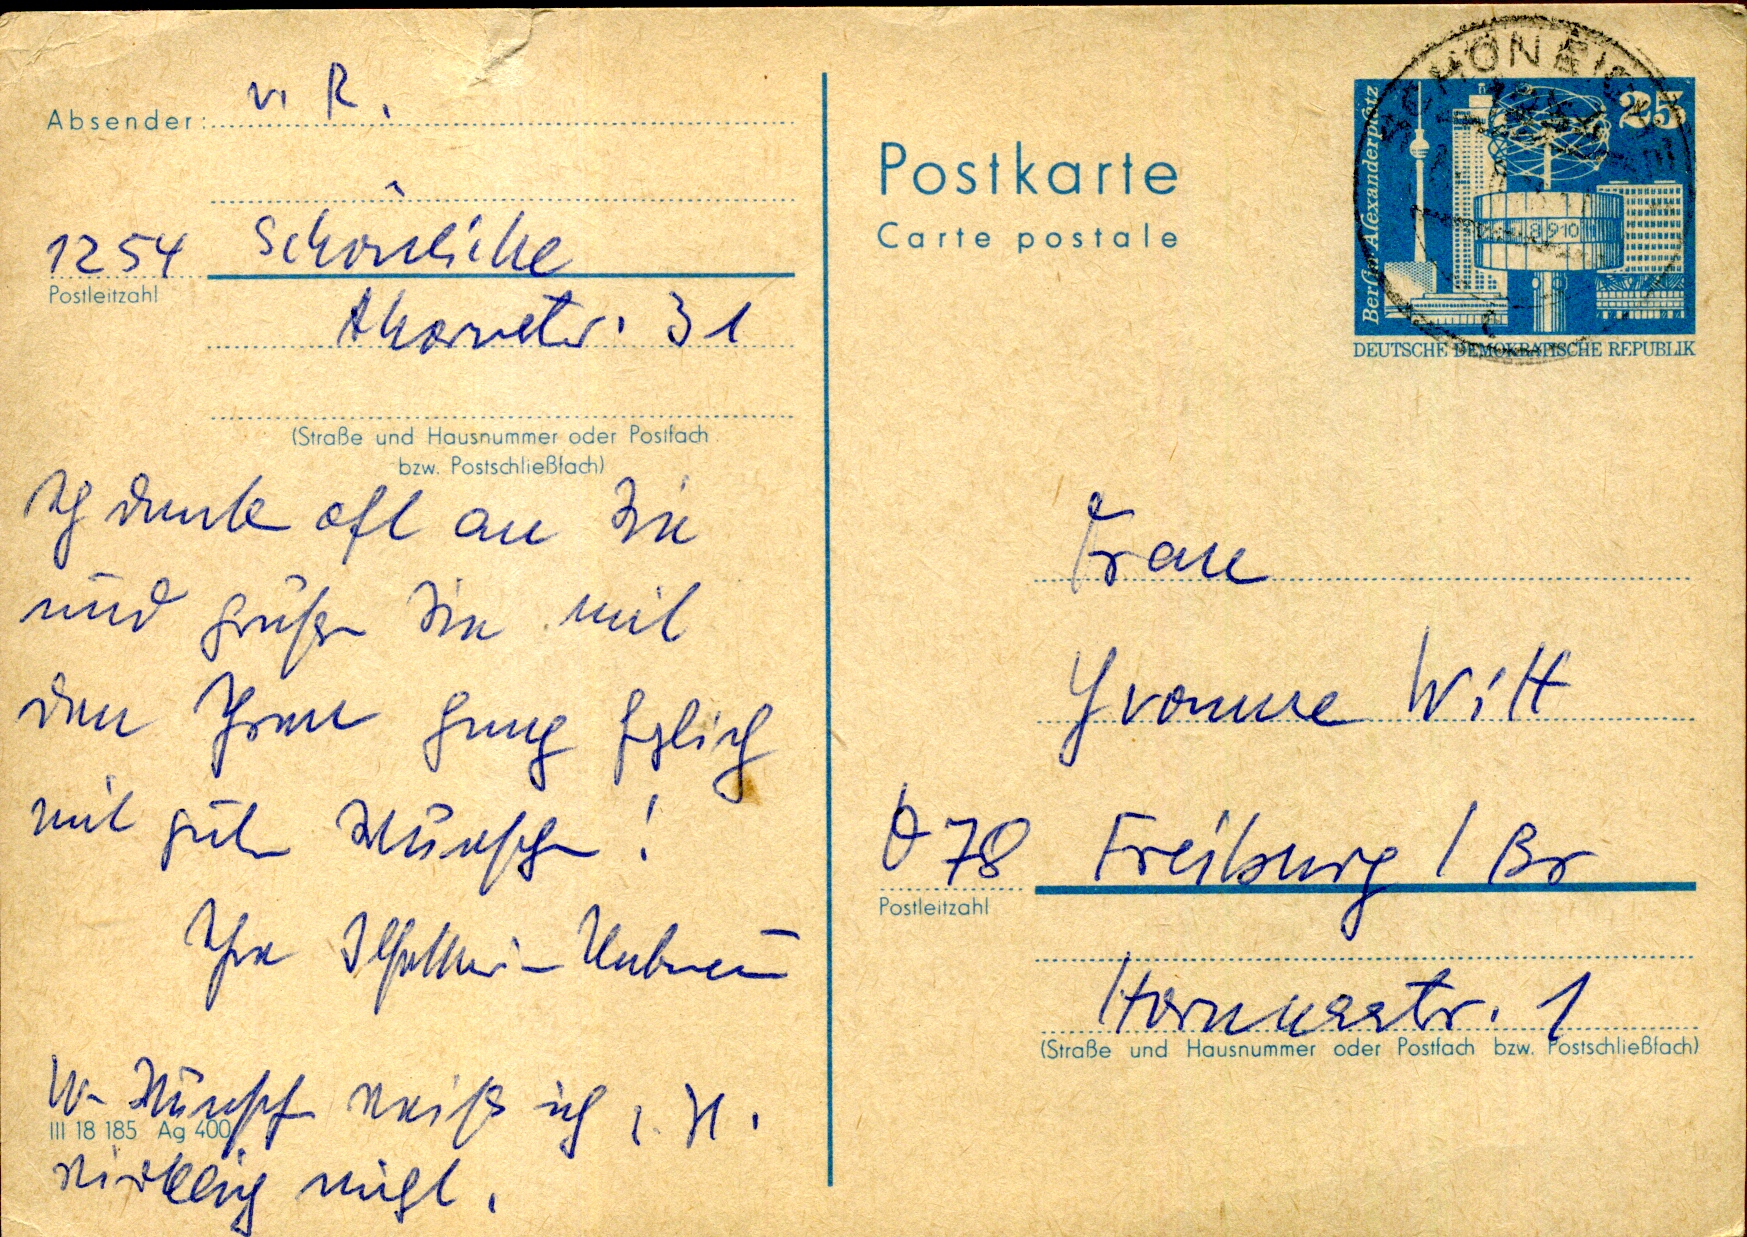 Absender: v. R.
1254 Schöneiche
Postleitzahl
Ahornstr. 31
(Straße und Hausnummer oder Postfach
bzw. Postschließfach)
Ich denke oft an Sie
und grüße Sie mit
den Ihren ganz herzlich
mit guten Wünschen!
Ihre
W- Wünsche weiß ich z. Zt.
wirklich nicht.
III 18 185 Ag 400
Postkarte
Carte postale
SCHÖNEICHE
Berlin-Alexanderplatz
25
8 9 10
DEUTSCHE DEMOKRATISCHE REPUBLIK
Frau
Yvonne Witt
D 78 Freiburg / Br
Postleitzahl
Hornusstr. 1
(Straße und Hausnummer oder Postfach bzw. Postschließfach)